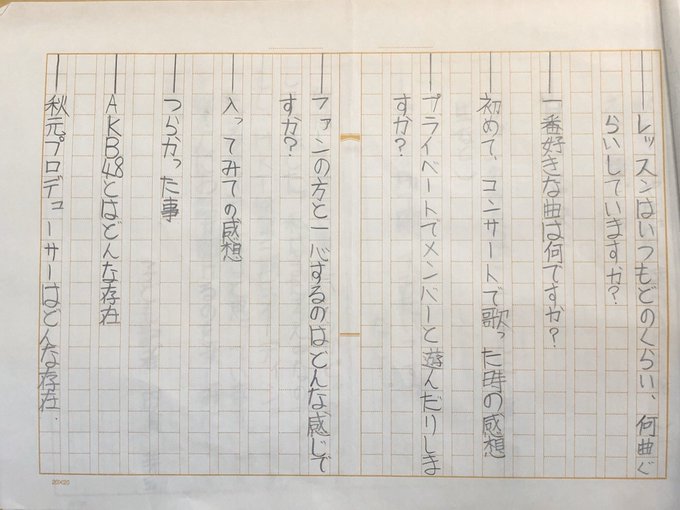 ――レッスンはいつもどのくらい、何曲ぐ
らいしていますか？
――一番好きな曲は何ですか？
――初めて、コンサートで歌った時の感想
――プライベートでメンバーと遊んだりしま
すか？
――ファンの方と一心するのはどんな感じで
すか？
――入ってみての感想
――つらかった事
――AKB48とはどんな存在
――秋元プロデューサーはどんな存在.
20×20